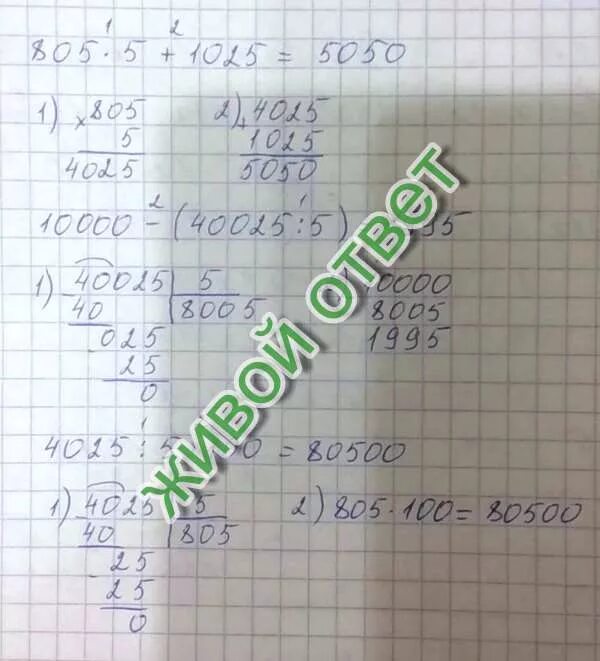 805 · 5 + 1025 = 5050
1) 805 2) 4025
× 5 + 1025
4025 5050
10000 - (40025 : 5) 95
1) 40025 | 5 0000
40 | 8005 8005
025 1995
25
0
ЖИВОЙ ОТВЕТ
4025 : 5 0 = 80500
1) 4025 | 5 2) 805 · 100 = 80500
40 | 805
25
25
0